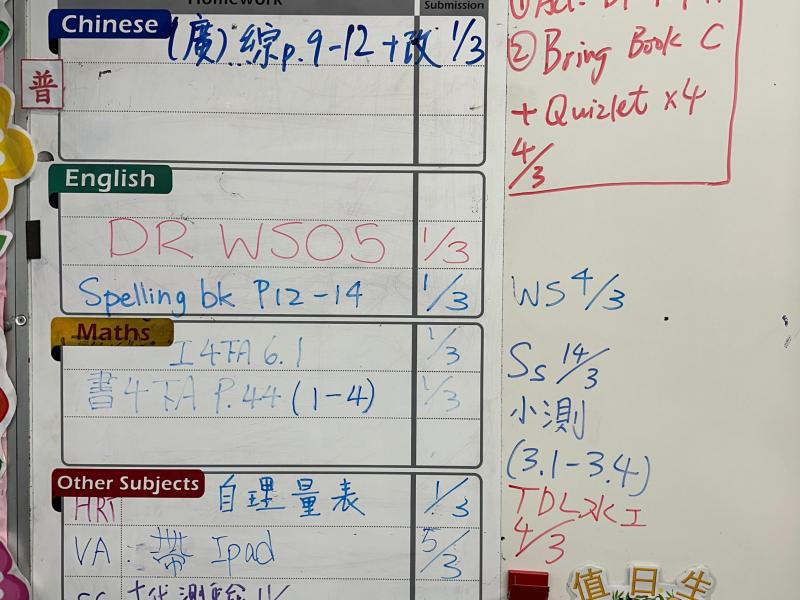 Homework
Submission
Chinese
(廣) 綜p.9-12 +改 1/3
普
English
DR WS05 1/3
Spelling bk P12-14 1/3
Maths
工4下A 6.1 1/3
書4下A P.44 (1-4) 1/3
Other Subjects
HRT 自理量表 1/3
VA: 帶 Ipad 5/3
② Bring Book C
+ Quizlet x4
4/3
WS 4/3
Ss 14/3
小測
(3.1-3.4)
4/3
值日生